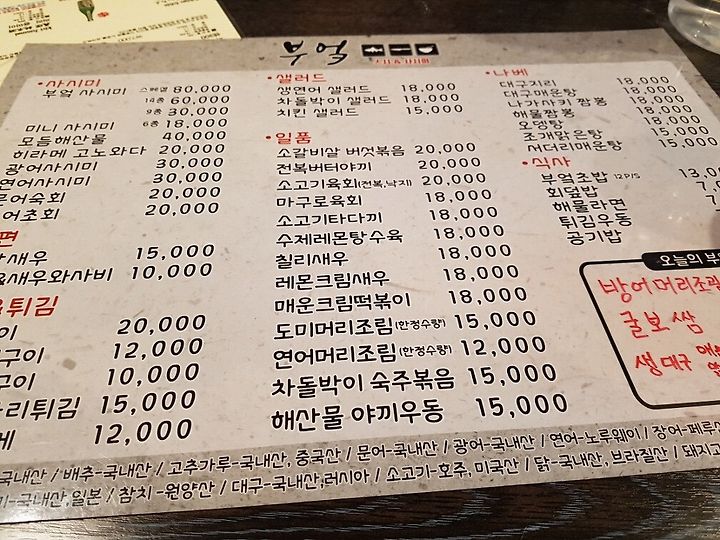 부엌
스시&사시미
•사시미
부엌 사시미 스페셜 80,000
14층 60,000
9층 30,000
미니 사시미 6층 18,000
모듬해산물 40,000
히라메 고노와다 20,000
광어사시미 30,000
연어사시미 30,000
문어숙회 20,000
어초회 20,000
편
새우 15,000
새우와사비 10,000
튀김
이 20,000
구이 12,000
구이 10,000
리튀김 15,000
베 12,000
•샐러드
생연어 샐러드 18,000
차돌박이 샐러드 18,000
치킨 샐러드 15,000
•일품
소갈비살 버섯볶음 20,000
전복버터야끼 20,000
소고기육회(전복,낙지) 20,000
마구로육회 18,000
소고기타다끼 18,000
수제레몬탕수육 18,000
칠리새우 18,000
레몬크림새우 18,000
매운크림떡볶이 18,000
도미머리조림(한정수량) 15,000
연어머리조림(한정수량) 12,000
차돌박이 숙주볶음 15,000
해산물 야끼우동 15,000
•나베
대구지리 18,000
대구매운탕 18,000
나가사키 짬뽕 18,000
해물짬뽕 18,000
오뎅탕 15,000
조개맑은탕 15,000
서더리매운탕 15,000
•식사
부엌초밥 12P/S 13,0
회덮밥 7,
해물라면 7
튀김우동
공기밥
오늘의 부
방어머리조림
굴보쌈
생대구
국내산 / 배추-국내산 / 고추가루-국내산, 중국산 / 문어-국내산 / 광어-국내산 / 연어-노루웨이 / 장어-페루
국내산,일본 / 참치-원양산 / 대구-국내산,러시아 / 소고기-호주, 미국산 / 닭-국내산, 브라질산 / 돼지고